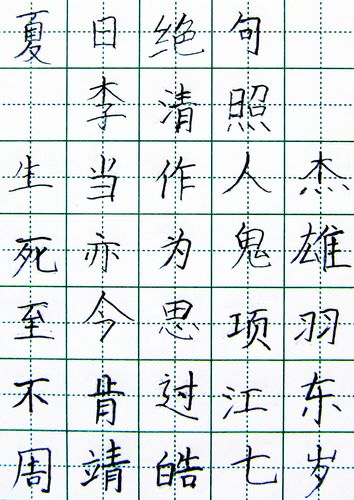 夏日绝句
李清照
生当作人杰
死亦为鬼雄
至今思项羽
不肯过江东
周靖皓七岁